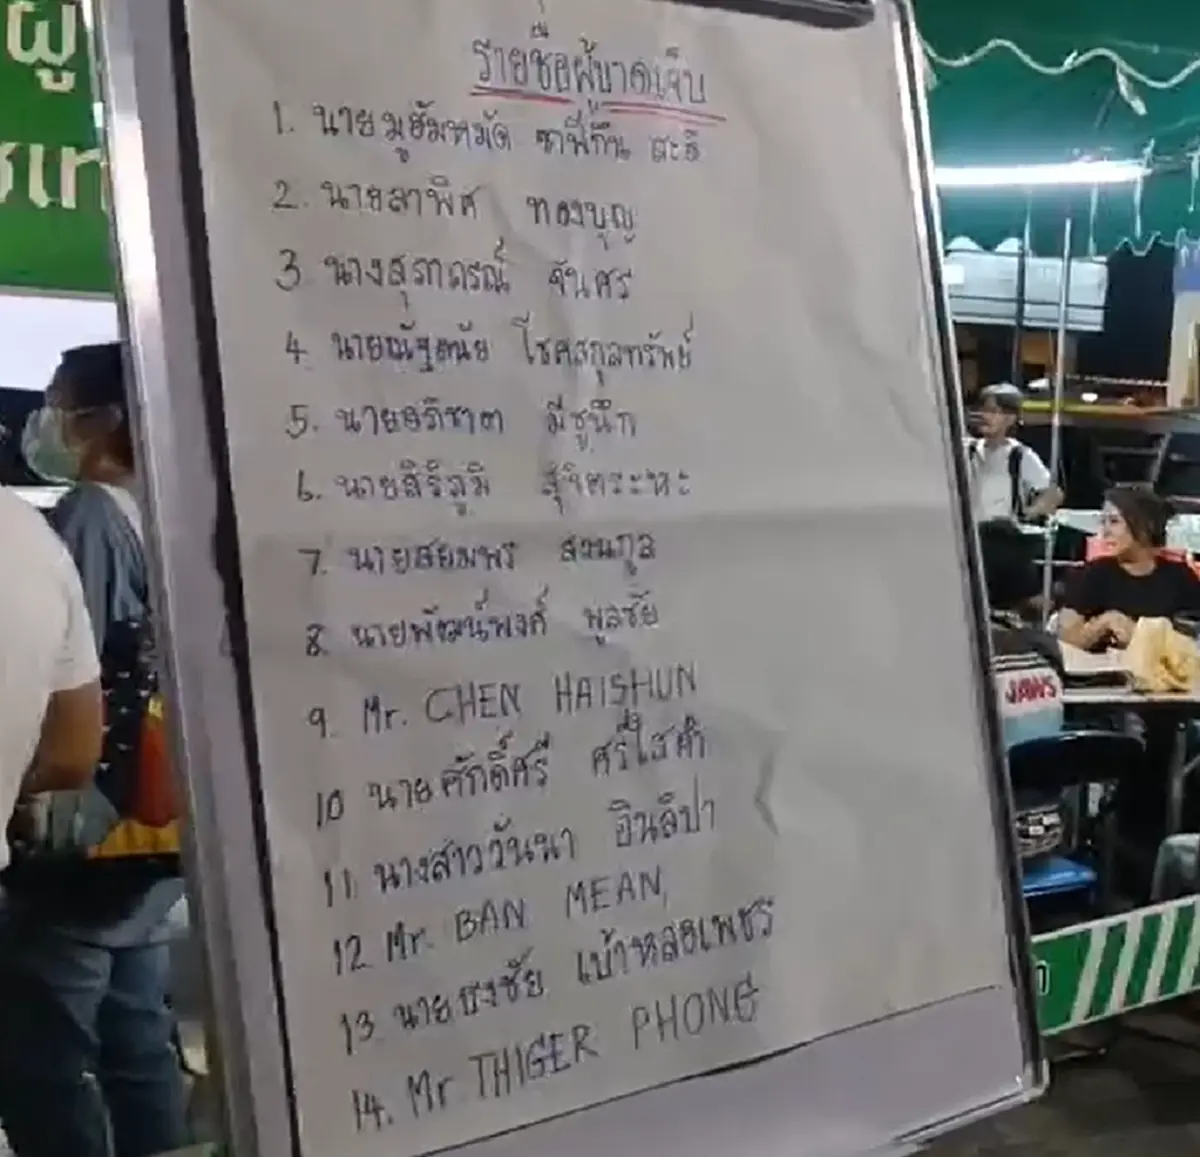 รายชื่อผู้บาดเจ็บ
1. นายมูฮัมหมัด ซาฟีกีน สะอิ
2. นายลาพิศ ทองบุญ
3. นางสุรภาภรณ์ จันศร
4. นายณัฐดนัย โชคสกุลทรัพย์
5. นายอภิชาต มีชูนึก
6. นายสิริภูมิ สุจิตระหะ
7. นายสยมพร สงวนกูล
8. นายพัฒน์พงศ์ พูลชัย
9. Mr. CHEN HAISHUN
10 นายศักดิ์ศรี ศรีไสคำ
11. นางสาววันนา อินลิปา
12. Mr. BAN MEAN
13. นายธงชัย เบ้าหลอเพชร
14. Mr. THIGER PHONG
JAWS